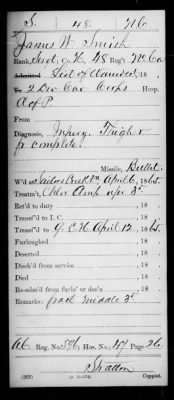 S. 48. N.C.
James W. Smith
Rank, Serg. Co. K, 48 Reg't N.C.
Admitted List of Wounded, 18
To 2 Div Corps Hospital
A of P.
From
Diagnosis, Injury. Thigh r
fr complete.
Missile, Bullet.
W'd at Sailors Creek Va April 6, 1865.
Treatm't, Amp upr 3d.
Ret'd to duty , 18
Transf'd to I. C. , 18
Transf'd to G.C.H. April 12, 1865.
Furloughed , 18
Deserted , 18
Disch'd from service , 18
Died , 18
Re-adm'd from furlo' or des'n , 18
Remarks: frac middle 3d.
A6 Reg. No. Hos. No. 47 Page 26
Stratton
Copyist.